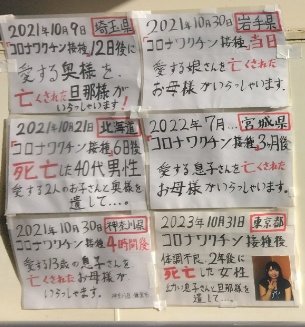 2021年10月9日 埼玉県
「コロナワクチン接種」12日後に
愛する奥様を、
亡くされた旦那様が
いらっしゃいます!
2021年10月30日 岩手県
「コロナワクチン接種」当日
愛する娘さんを
亡くされた
お母様がいらっしゃいます。
2021年10月21日 北海道
「コロナワクチン接種」6日後
死亡した40代男性
愛する2人のお子さんと奥様を
遺して…。
2022年7月… 宮城県
「コロナワクチン接種」3ヶ月後
愛する息子さんを
亡くされた
お母様がいらっしゃいます。
2021年10月30日 神奈川県
コロナワクチン接種 4時間後
愛する13歳の息子さんを
亡くされたお母様が、
いらっしゃいます。
2023年10月31日 東京都
コロナワクチン接種後
体調不良、2年後に
死亡した女性
幼い息子さんと旦那様を
遺して…。